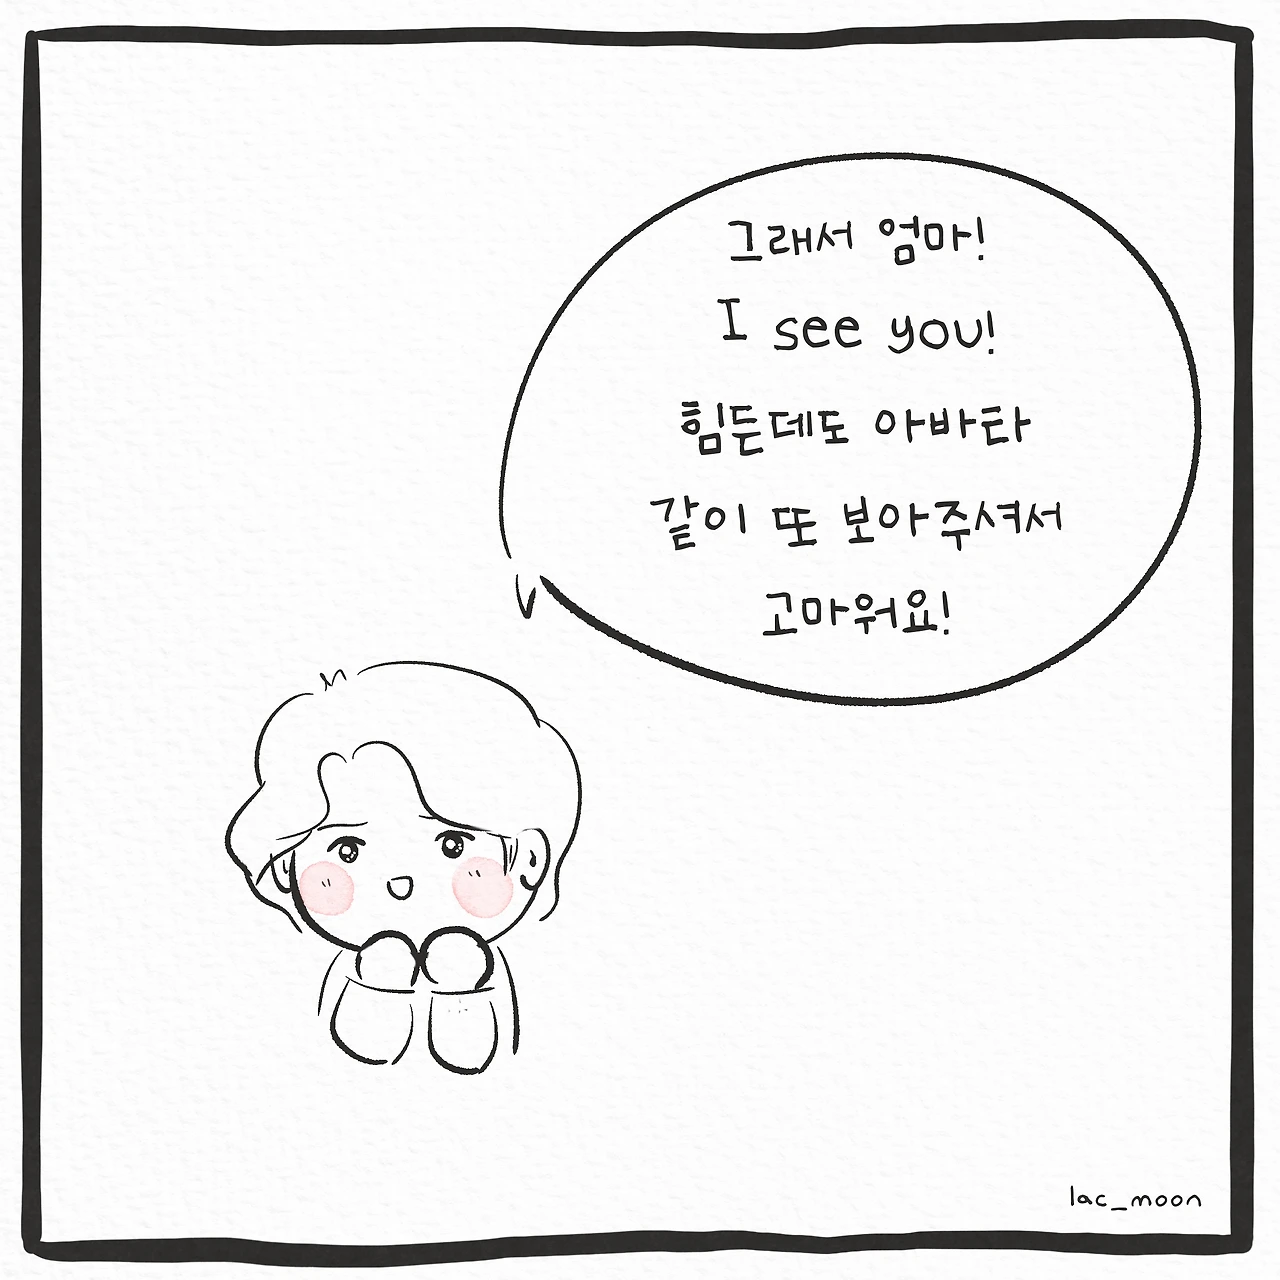 그래서 엄마!
I see you!
힘든데도 아바타
같이 또 보아주셔서
고마워요!
lac_moon